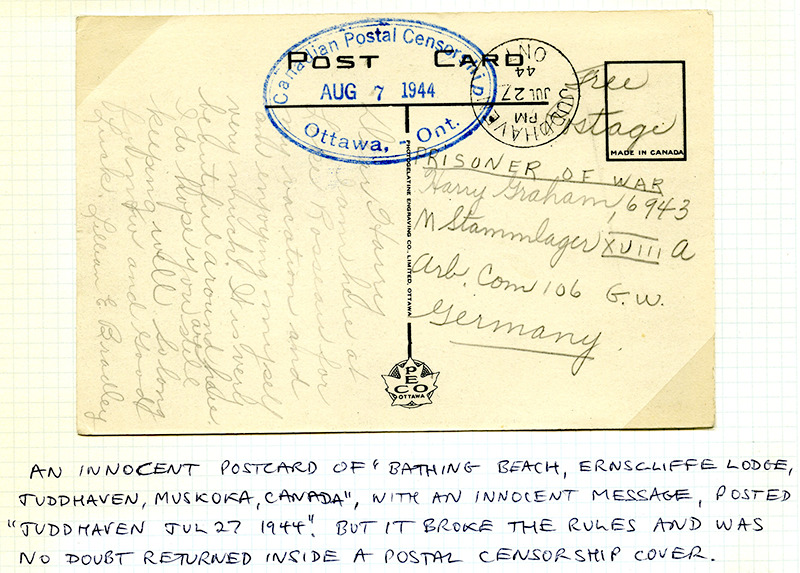 POST CARD
Canadian Postal Censorship.
AUG 7 1944
Ottawa, - Ont.
JUDDHAVEN
PM
JUL 27
44
ONT
Free
Postage
MADE IN CANADA
PHOTOGELATINE ENGRAVING CO., LIMITED, OTTAWA.
PECO
OTTAWA
PRISONER OF WAR
Harry Graham, 6943
M Stammlager XVIII A
Arb. Com 106 G.W.
Germany.
Dear Harry
I am here at
Lake Rosseau for
my vacation and
am enjoying myself
very much. It is very
beautiful around here
I do hope you are still
keeping well. So long
for now and Good
Luck. Lillian E Bradley
AN INNOCENT POSTCARD OF "BATHING BEACH, ERNSCLIFFE LODGE,
JUDDHAVEN, MUSKOKA, CANADA", WITH AN INNOCENT MESSAGE, POSTED
"JUDDHAVEN JUL 27 1944". BUT IT BROKE THE RULES AND WAS
NO DOUBT RETURNED INSIDE A POSTAL CENSORSHIP COVER.